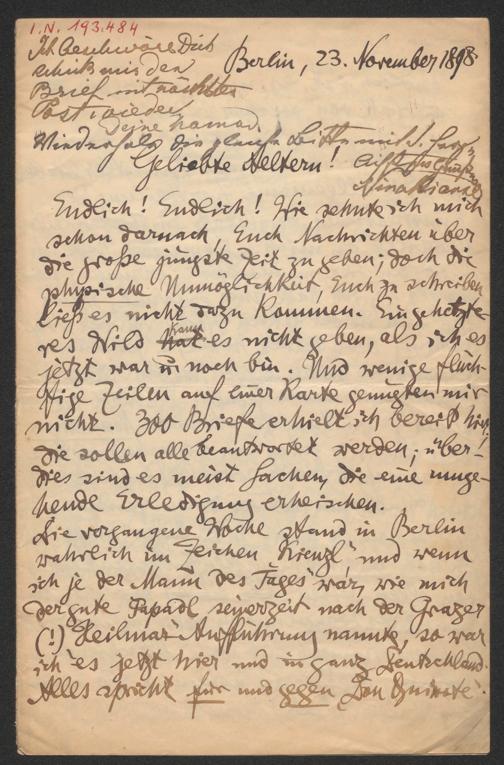 I.N. 193.484
Ich beschwöre Dich
schick mir den
Brief mit nächster
Post wieder
Berlin, 23. November 1898
Wiederhole die gleiche Bitte
Geliebte Aeltern!
Endlich! Endlich! Wie sehnte ich mich
schon darnach, Euch Nachrichten über
die große jüngste Zeit zu geben; doch die
physische Unmöglichkeit, Euch zu schreiben
ließ es nicht dazu kommen. Ein gehetzte-
res Wild kann es nicht geben, als ich es
jetzt war u. noch bin. Und wenige flüch-
tige Zeilen auf einer Karte genügten mir
nicht. 300 Briefe erhielt ich bereits hier,
die sollen alle beantwortet werden; über-
dies sind es meist Sachen, die eine umge-
hende Erledigung erheischen.
Die vergangene Woche stand in Berlin
wahrlich im "Zeichen Kienzl", und wenn
ich je der "Mann des Tages" war, wie mich
der gute Papadl seinerzeit nach der Grazer
(!) Heilmar-Aufführung nannte, so war
ich es jetzt hier und in ganz Deutschland.
Alles spricht für und gegen "Don Quixote".